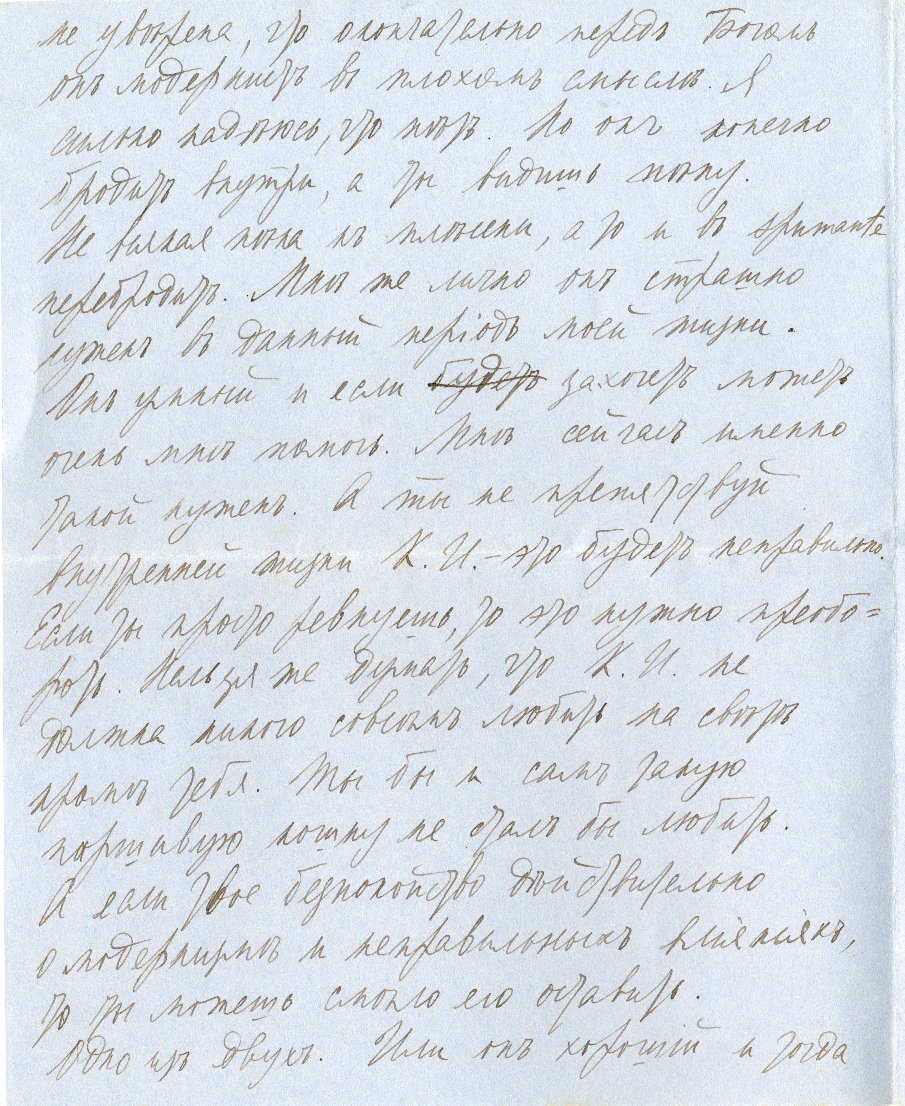 не увѣрена, что окончательно передъ Богомъ
онъ модернистъ въ плохомъ смыслѣ. Я
сильно надѣюсь, что нѣтъ. Но онъ конечно
бродитъ внутри, а ты видишь пѣну.
Не всякая пѣна къ плѣсени, а то и въ spumante
перебродитъ. Мнѣ же лично онъ страшно
нуженъ въ данный періодъ моей жизни.
Онъ умный и если будетъ захочетъ можетъ
очень мнѣ помочь. Мнѣ сейчасъ именно
такой нуженъ. А ты не препятствуй
внутренней жизни К. И. – это будетъ неправильно.
Если ты просто ревнуешь, то это нужно преобо=
роть. Нельзя же думать, что К. И. не
должна никого совсѣмъ любить на свѣтѣ
кромѣ тебя. Ты бы и самъ такую
паршивую кошку не сталъ бы любить.
А если твое безпокойство дѣйствительно
о модернизмѣ и неправильныхъ вліяніяхъ,
то ты можешь смѣло его оставить.
Одно изъ двухъ. Или онъ хорошій и тогда